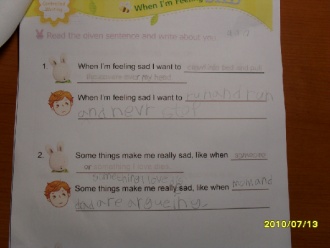 When I'm Feeling
Read the given sentence and write about
1. When I'm feeling sad I want to
over my head
When I'm feeling sad I want to run and run
and nevr stop
2. Some things make me really sad, like when someone
or something I love dies
Some things make me really sad, like when mum and
dad are argueing
2010/07/13